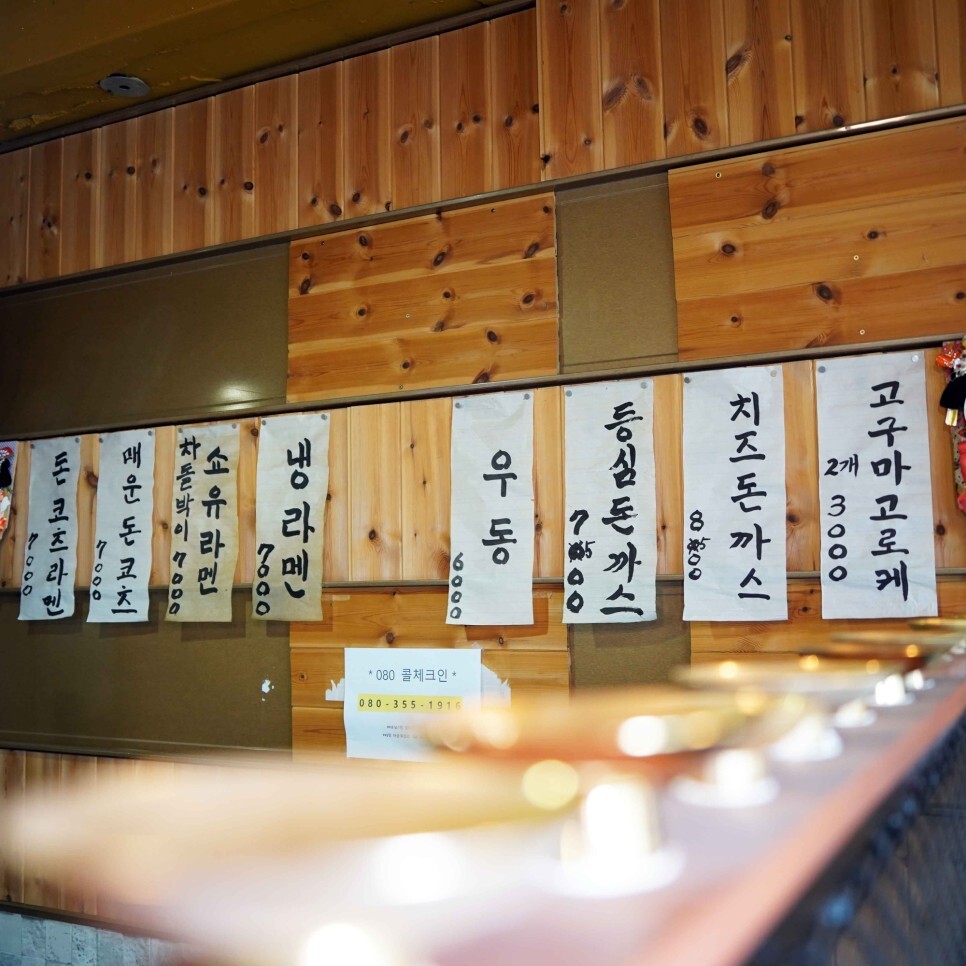 돈코츠라멘
7000
매운돈코츠
7000
차돌박이
쇼유라멘
7000
냉라멘
7000
우동
6000
등심돈까스
7500
치즈돈까스
8500
고구마고로케
2개
3000
* 080 콜체크인 *
080-355-1916